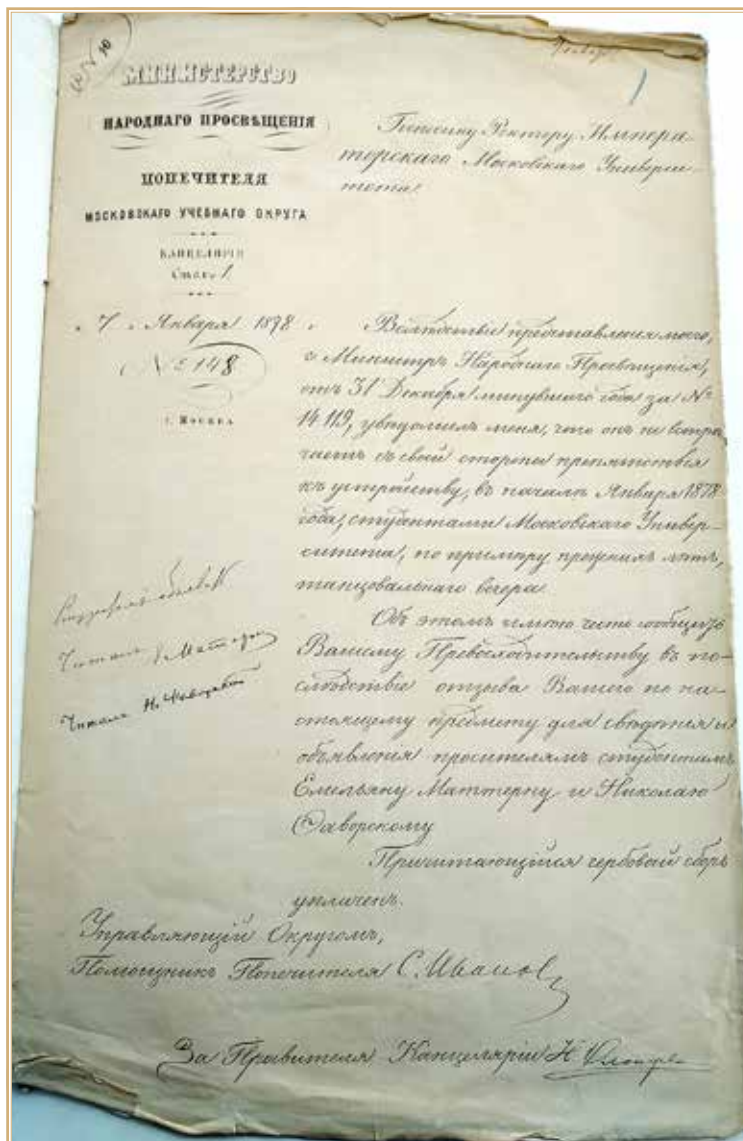 МИНИСТЕРСТВО
НАРОДНАГО ПРОСВѢЩЕНІЯ
ПОПЕЧИТЕЛЯ
МОСКОВСКАГО УЧЕБНАГО ОКРУГА
КАНЦЕЛЯРІЯ
Столъ 1
„ 7 „ Января 1878 „
№ 148
г. Москва
Господину Ректору Импера-
торскаго Московскаго Универси-
тета
Вслѣдствіе представленія моего,
г. Министръ Народнаго Просвѣщенія,
отъ 31 Декабря минувшаго года за №
14119, увѣдомилъ меня, что онъ не встрѣ
чаетъ съ своей стороны препятствія
къ устройству, въ началѣ Января 1878
года, студентами Московскаго Универ-
ситета, по примѣру прошлыхъ лѣтъ,
танцовальнаго вечера
Объ этомъ имѣю честь сообщить
Вашему Превосходительству въ по-
слѣдствіе отзыва Вашего по на-
стоящему предмету для свѣдѣнія и
объявленія просителямъ студентамъ
Емельяну Маттерну и Николаю
Фаворскому
Причитающійся гербовый сборъ
уплаченъ.
Читалъ Маттернъ
Читалъ Н. Фаворскій
Управляющій Округомъ,
Помощникъ Попечителя С. Ивановъ
За Правителя Канцеляріи Н.